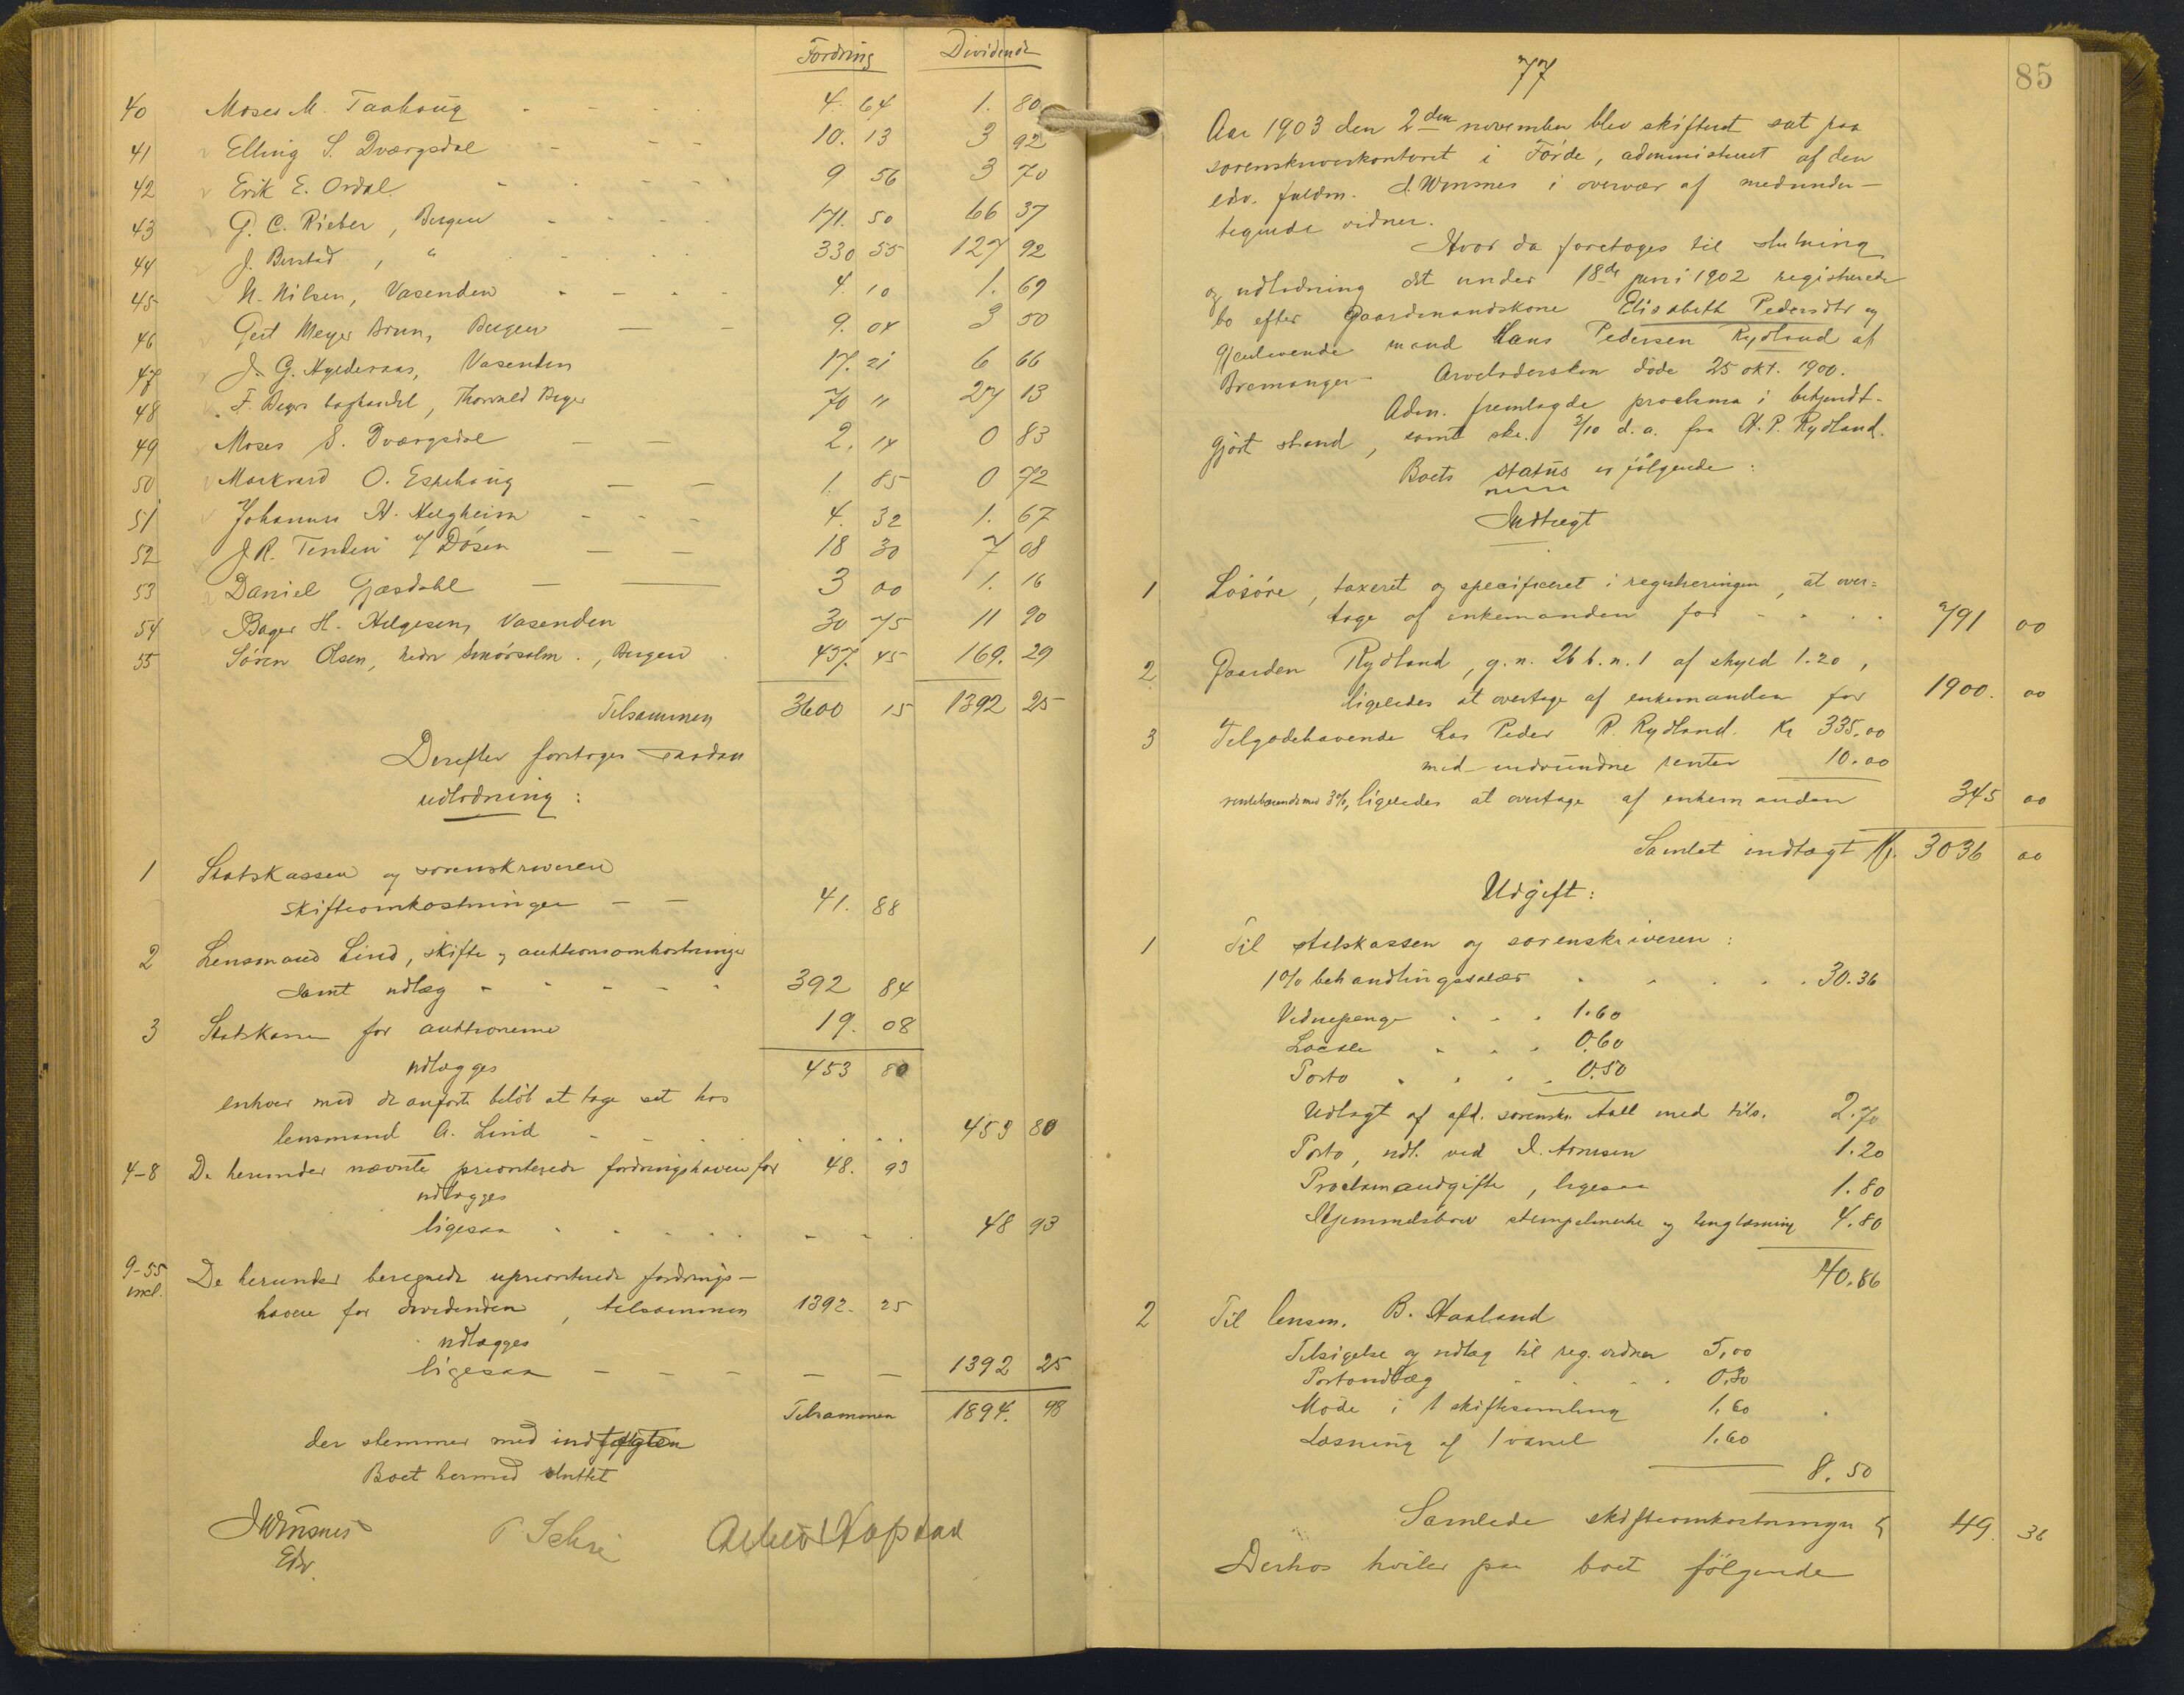 Fordring Dividende
40 Moses M. Taahaug - - - - 4. 64 1. 80
41 Elling S. Dvergsdal - - - 10. 13 3 92
42 Erik E. Ordal - - - - 9 56 3 70
43 G. C. Rieber, Bergen - - - - 171. 50 66 37
44 J. Berstad, " - - - - 330 55 127 92
45 N. Nilsen, Vasenden - - - - 4 10 1. 69
46 Gert Meyer Bruun, Bergen — - 9. 04 3 50
47 J. G. Vasenden 17. 21 6 66
48 F. Beyers boghandel, Thorvald Beyer 70 11 27 13
49 Moses S. Dvergsdal — — 2. 14 0 83
50 Markvard O. Espehaug — — 1. 85 0 72
51 Johannes H. Helgheim - - - 4. 32 1. 67
52 J. R. Tenden Dösen — — 18 30 7 08
53 Daniel Gjæsdahl — — 3 00 1. 16
54 Bager H. Helgesen, Vasenden 30 75 11 90
55 Sören Olsen, Smörsalm., Bergen 437. 45 169. 29
Tilsammen 3600 15 1392 25
Derefter foretoges saadan
udlodning:
1 Statskassen og sorenskriveren
skifteomkostninger — — 41. 88
2 Lensmand Lind, skifte og auktionsomkostninger
samt udlæg - - - - - 392 84
3 Statskassen for auktionerne 19. 08
udlægges 453 80
enhver med de anförte belöb at tage ret hos
lensmand A. Lind - - - - - - 453 80
4-8 De herunder nævnte prioriterede fordringshavere for 48. 93
udlægges
ligesaa - - - - - - - - 48 93
9-55 De herunder beregnede uprioriterede fordrings-
incl. havere for dividenden, tilsammen 1392. 25
udlægges
ligesaa — — — — — — 1392 25
Tilsammen 1894. 98
der stemmer med indtægten
Boet hermed sluttet
J Winsnes
Edv.
77 85
Aar 1903 den 2den november blev skifteret sat paa
sorenskriverkontoret i Förde, administreret af den
edsv. fuldm. J. Winsnes i overvær af medunder-
tegnede vidner.
Hvor da foretoges til slutning
og udlodning det under 18de juni 1902 registrerede
bo efter gaardmandskone Elisabeth Pedersdtr og
gjenlevende mand Hans Pedersen Rydland af
Bremanger - Arveladersken döde 25 okt. 1900.
Adm. fremlagde proclama i bekjendt-
gjort stand, samt skr. 2/10 d.a. fra H. P. Rydland.
Boets status er fölgende:
Indtægt
1 Lösöre, taxeret og specificeret i registreringen, at over=
tage af enkemanden for - - - - 791 00
2 Gaarden Rydland, g.n. 26 b.n. 1 af skyld 1.20,
ligeledes at overtage af enkemanden for 1900. 00
3 Tilgodehavende hos Peder R. Rydland. Kr 335,00
med indvundne renter 10.00
rentebærende med 3%, ligeledes at overtage af enkemanden 345 00
Samlet indtægt Kr. 3036 00
Udgift:
1 Til statskassen og sorenskriveren:
1% behandlingssalær - - - - 30.36
Vidnepenge - - - 1.60
Locale - - - 0.60
Porto - - - - 0.50
Udlagt af afd. sorenskr. Aall med tils. 2.70
Porto, udl. ved 1.20
Proclamaudgifter, ligesaa 1.80
Hjemmelsbrev stempelmerke og tinglæsning 4.80
40.86
2 Til lensm. B. Haaland
Tilsigelse og udlæg til reg. vidner 5,00
Portoudlæg - - - 0.30
Möde i 1 skiftesamling 1.60
Læsning af 1 varsel 1.60
8.50
Samlede skifteomkostninger 49. 36
Derhos hviler paa boet fölgende